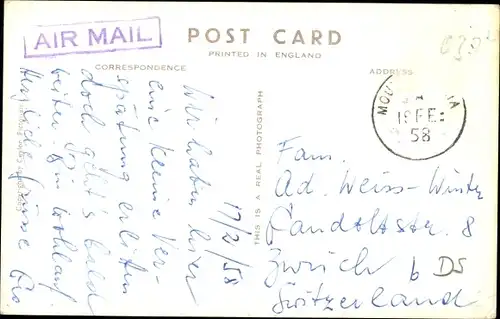 AIR MAIL
POST CARD
PRINTED IN ENGLAND
CORRESPONDENCE
ADDRESS
THIS IS A REAL PHOTOGRAPH
19 FE
58
17/2/58
Wir haben hier
eine kleine Ver-
spätung erlitten
doch geht's bald
weiter. Bin wohlauf
Herzliche Grüsse
Fam.
Ad. Weiss-Winter
Landoltstr. 8
Zürich 6
Switzerland